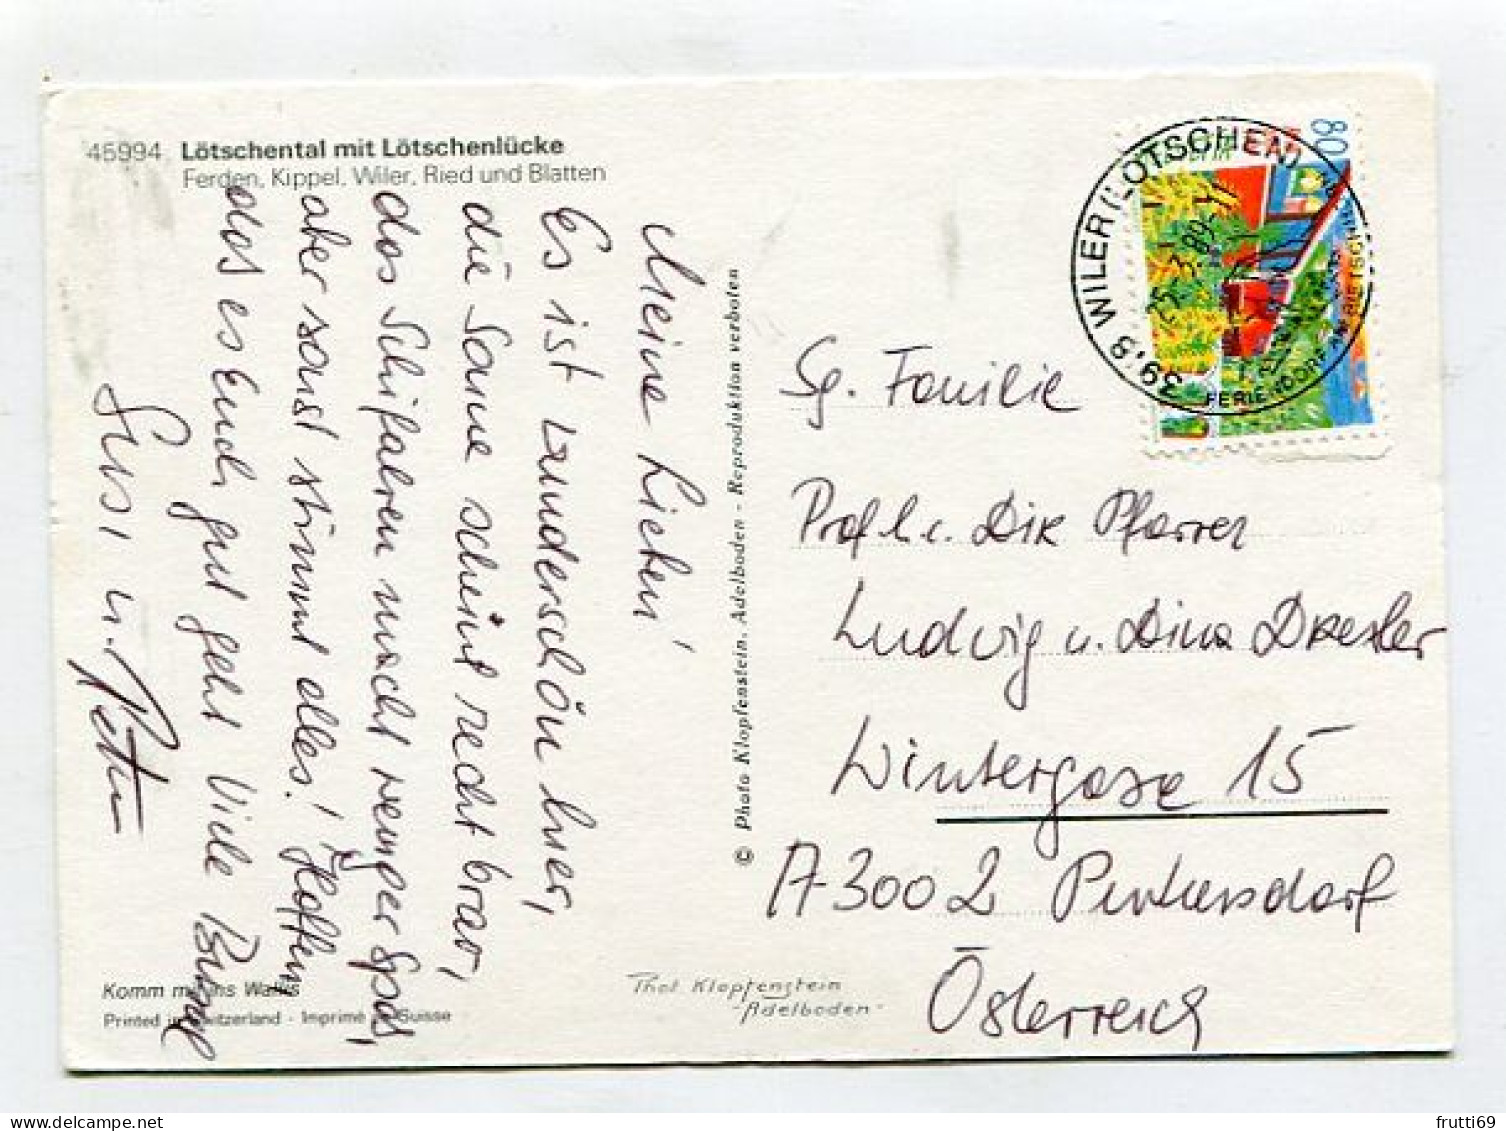 45994 Lötschental mit Lötschenlücke
Ferden, Kippel, Wiler, Ried und Blatten
Meine Lieben!
Es ist wunderschön hier,
die Sonne scheint recht brav,
das Schifahren macht weniger Spaß,
aber sonst stimmt alles! Hoffen,
daß es Euch gut geht Viele
Susi u. Peter
Komm mit ins Wallis
Printed in Switzerland - Imprimé en Suisse
© Photo Klopfenstein, Adelboden - Reproduktion verboten
Phot. Klopfenstein
-Adelboden-
80
3903 WILER (LÖTSCHEN)
25.-3.89-11
FERIENDORF AM BIETSCHHORN
Sg. Familie
Prof. h. c. Dir. Pfarrer
Ludwig u. Dina Drexler
Wintergasse 15
A-3002 Purkersdorf
Österreich
frutti69